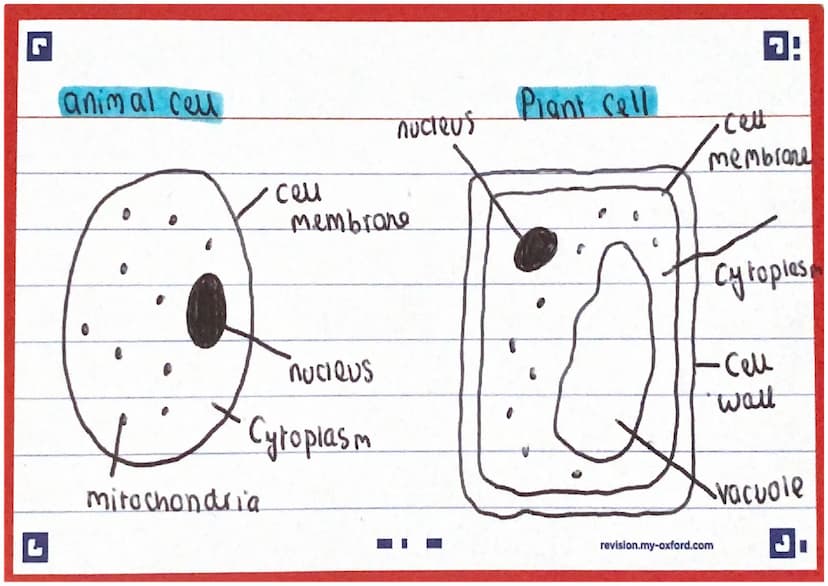 animal cell
Plant cell
nucleus
cell
membrane
cell
membrane
Cytoplasm
nucleus
Cell
wall
Cytoplasm
mitochondria
vacuole
revision.my-oxford.com